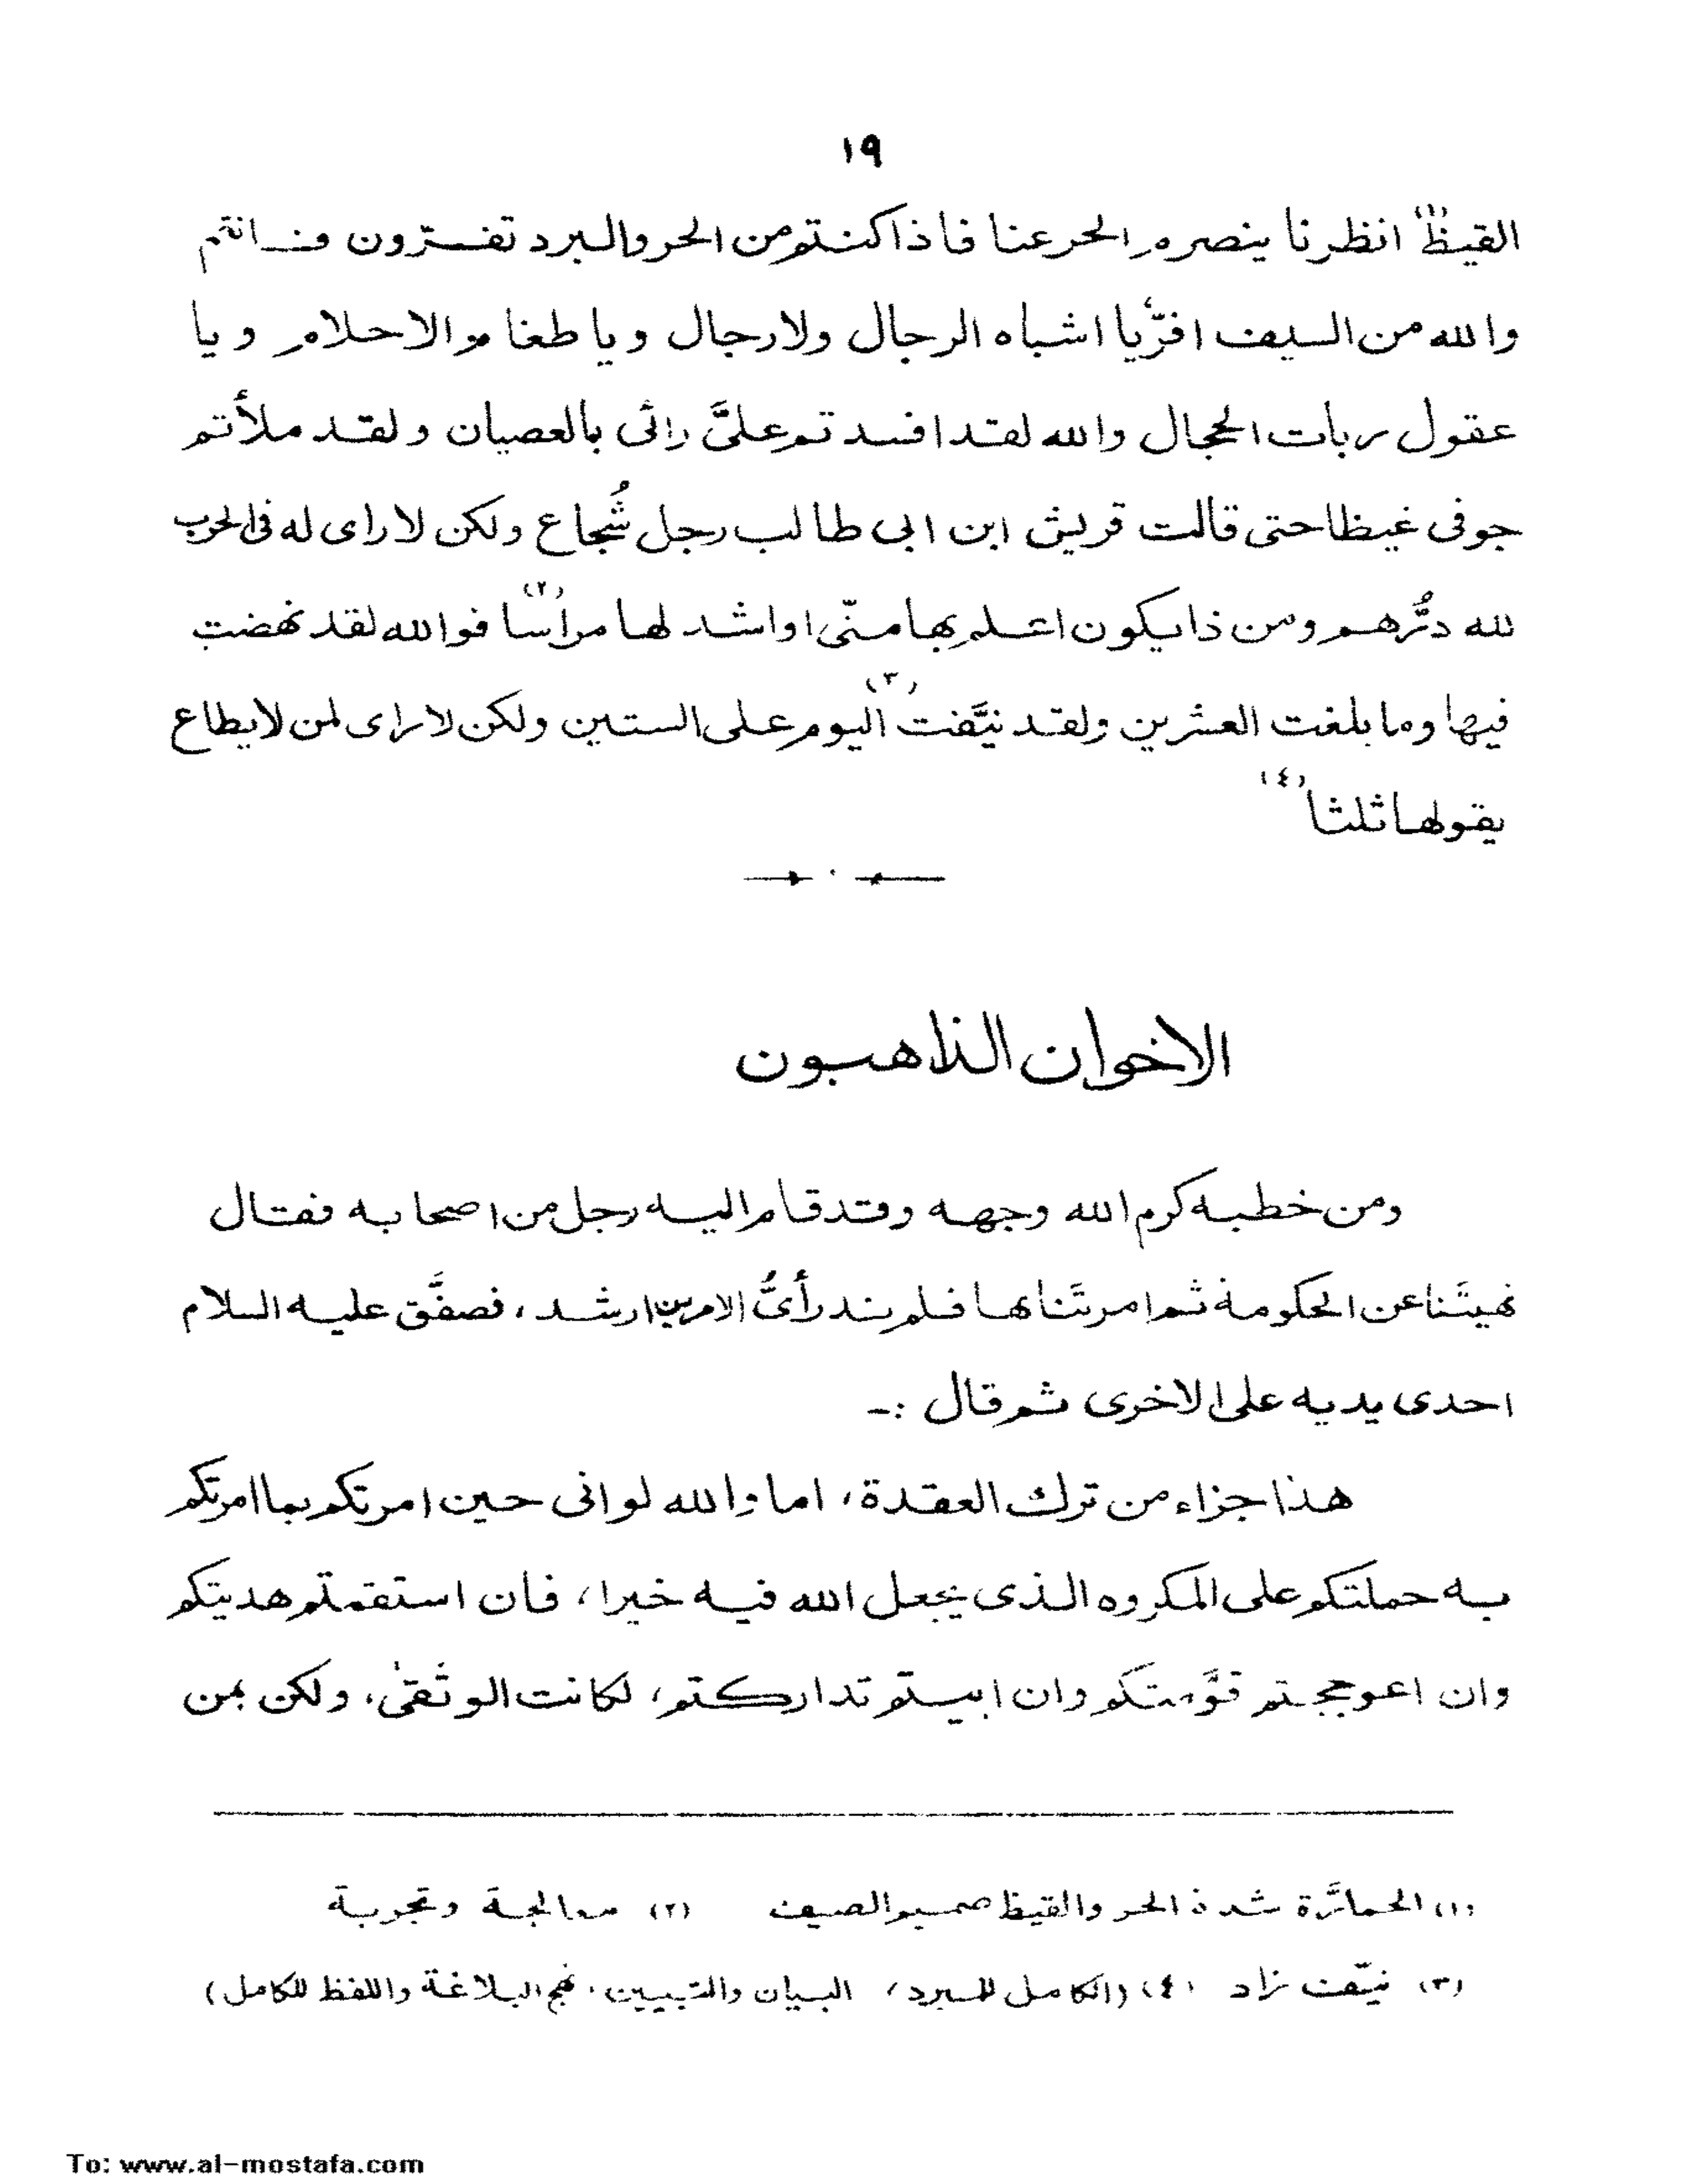 ١٩
القيظ(١) انظرنا ينصرم الحر عنا فاذا كنتم من الحر والبرد تفترون فانتم
والله من السيف افرّ يا اشباه الرجال ولا رجال ويا طغام الاحلام ويا
عقول ربات الحجال والله لقد افسدتم علىَّ رائى بالعصيان ولقد ملأتم
جوفى غيظا حتى قالت قريش ابن ابى طالب رجل شُجاع ولكن لا راى له فى الحرب
لله دُّرهم ومن ذا يكون اعلم بها منّى او اشد لها مراسا(٢) فوالله لقد نهضت
فيها وما بلغت العشرين ولقد نيَّفت(٣) اليوم على الستين ولكن لا راى لمن لا يطاع
يقولها ثلثا(٤)
الاخوان الذاهبون
ومن خطبه كرم الله وجهه وقد قام اليه رجل من اصحابه فقال
نهيتَنا عن الحكومة ثم امرتَنا بها فلم ندر أىُّ الامرين ارشد، فصفَّق عليه السلام
احدى يديه على الاخرى ثم قال :ـ
هذا جزاء من ترك العقدة، اما والله لو انى حين امرتكم بما امرتكم
به حملتكم على المكروه الذى يجعل الله فيه خيرا، فان استقمتم هديتكم
وان اعوججتم قوَّمتكم وان ابيتم تداركتم، لكانت الوثقىٰ، ولكن بمن
(١) الحمارَّة شدة الحر والقيظ صميم الصيف (٢) معالجة وتجربة
(٣) نيّفت زاد (٤) (الكامل للمبرد، البيان والتبيين، نهج البلاغة واللفظ للكامل)
To: www.al-mostafa.com